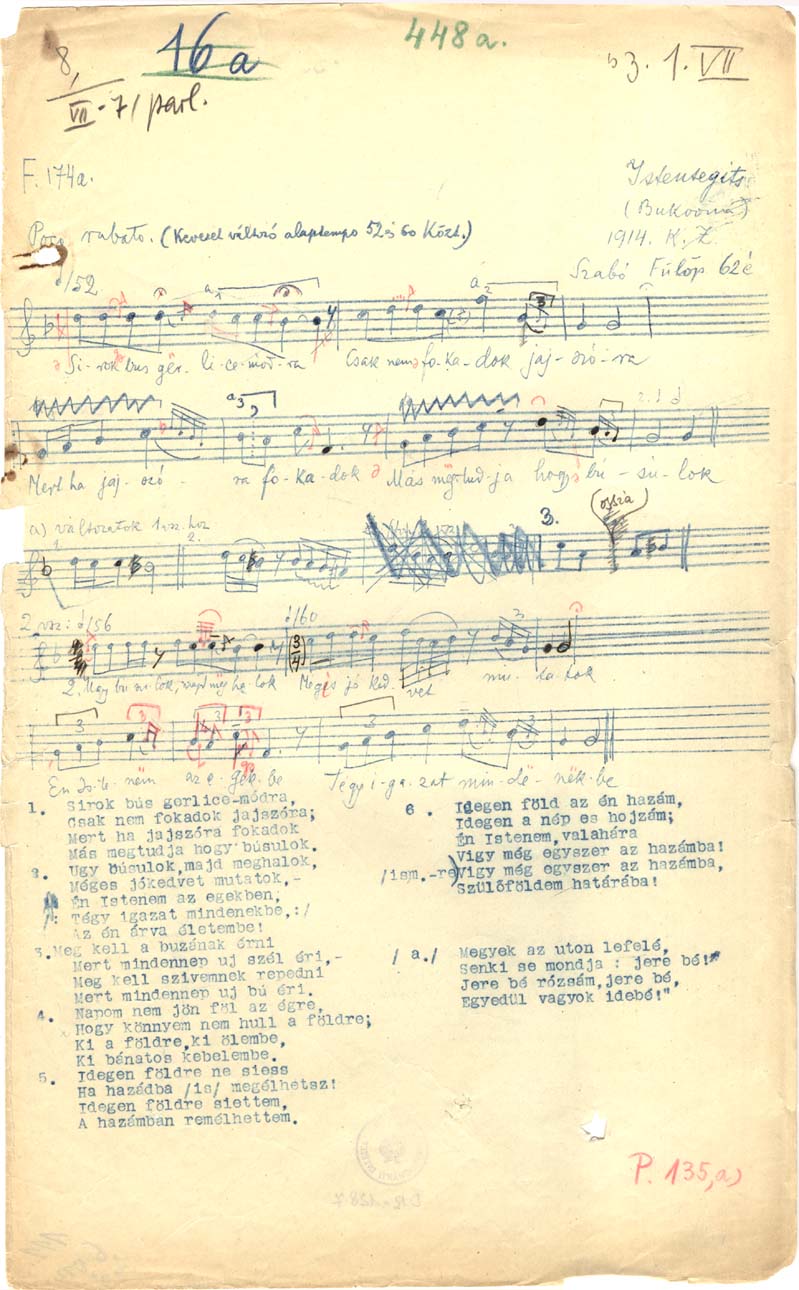 448a.
16a
8,
VII - 7/ parl.
3. 1. VII
F. 174a.
Istensegits
(Bukovina)
Poco rubato. (Kevesset váltzó alaptempo 52 és 60 Közt.)
1914. K. Z.
Szabó Fülöp 62 é
/52
a1
a2
3
Si-rok bus gër-li-ce-mód-ra Csak nem fo-ka-dok jaj-szó-ra
a3
Mert ha jaj-szó-ra fo-ka-dok Más mëg-tud-ja hogy bu-su-lok
a) változatok 1 vsz.hoz
1.
2.
3.
(ossia)
2. vsz: /56
/60
3
2. Ugy bu-su-lok, majd mëg ha-lok Mégis jó ked-vet mu-ta-tok
3 3 3 3
Én Is-te-nëm az e-gek-be Tégy i-ga-zat min-dë-nëk-be
1. Sirok bús gerlice-módra,
Csak nem fokadok jajszóra;
Mert ha jajszóra fokadok
Más megtudja hogy búsulok.
2. Ugy búsulok, majd meghalok,
Méges jókedvet mutatok,-
Én Istenem az egekben;
/: Tégy igazat mindenekbe,:/
Az én árva életembe!
3. Meg kell a buzának érni
Mert mindennep uj szél éri,-
Meg kell szivemnek repedni
Mert mindennep uj bú éri.
4. Napom nem jön föl az égre,
Hogy könnyem nem hull a földre;
Ki a földre, ki ölembe,
Ki bánatos kebelembe.
5. Idegen földre ne siess
Ha hazádba /is/ megélhetsz!
Idegen földre siettem,
A hazámban remélhettem.
6. Idegen föld az én hazám,
Idegen a nép es hojzám;
Én Istenem, valahára
Vigy még egyszer az hazámba!
/ism.-re) Vigy még egyszer az hazámba,
Szülőföldem határába!
/ a./ Megyek az uton lefelé,
Senki se mondja : jere bé!"
Jere bé rózsám, jere bé,
Egyedül vagyok idebé!"
P. 135,a)